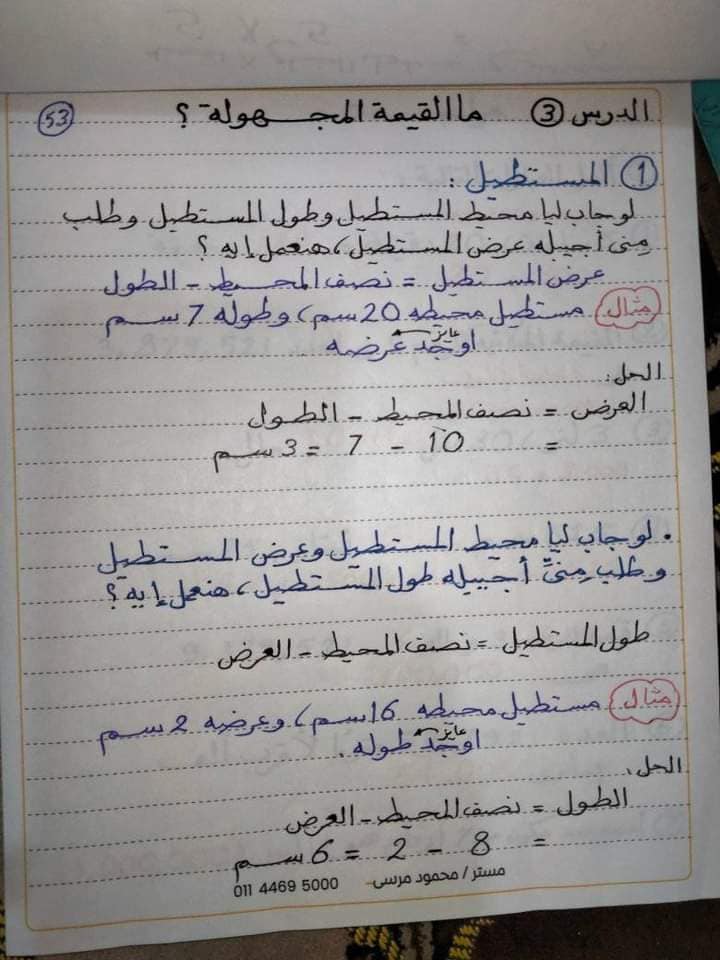 الدرس 3 ما القيمة المجهولة ؟ 53
1 المستطيل :
لو جاب ليا محيط المستطيل وطول المستطيل وطلب
مِنى أجيبله عرض المستطيل، هنعمل إيه ؟
عرض المستطيل = نصف المحيط - الطول
مثال مستطيل محيطه 20 سم، وطوله 7 سم
عايز
اوجد عرضه
الحل:
العرض = نصف المحيط - الطول
= 10 - 7 = 3 سم
• لو جاب ليا محيط المستطيل وعرض المستطيل
وطلب مِنىِّ أجيبله طول المستطيل، هنعمل إيه ؟
طول المستطيل = نصف المحيط - العرض
مثال مستطيل محيطه 16 سم، وعرضه 2 سم
عايز
اوجد طوله .
الحل:
الطول = نصف المحيط - العرض
= 8 - 2 = 6 سم
مستر / محمود مرسى
011 4469 5000